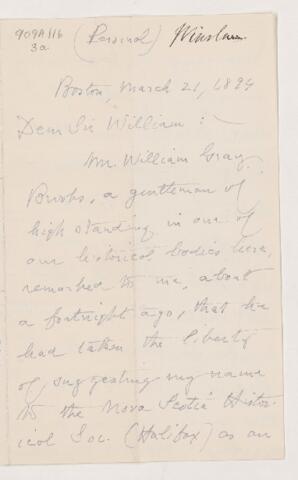 909A116
3a
(Personal) Winslow.
Boston, March 21, 1894
Dear Sir William :-
Mr. William Gray
Brooks, a gentleman of
high standing in one of
our historical bodies here,
remarked to me, about
a fortnight ago, that he
had taken the liberty
of suggesting my name
to the Nova Scotia Histor-
ical Soc. (Halifax) as an